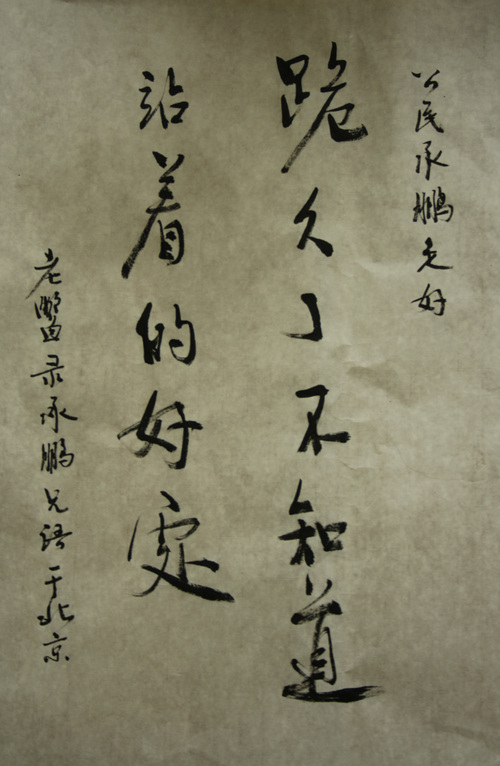 公民承鹏兄好
跪久了不知道
站着的好處
老录承鹏兄语于北京